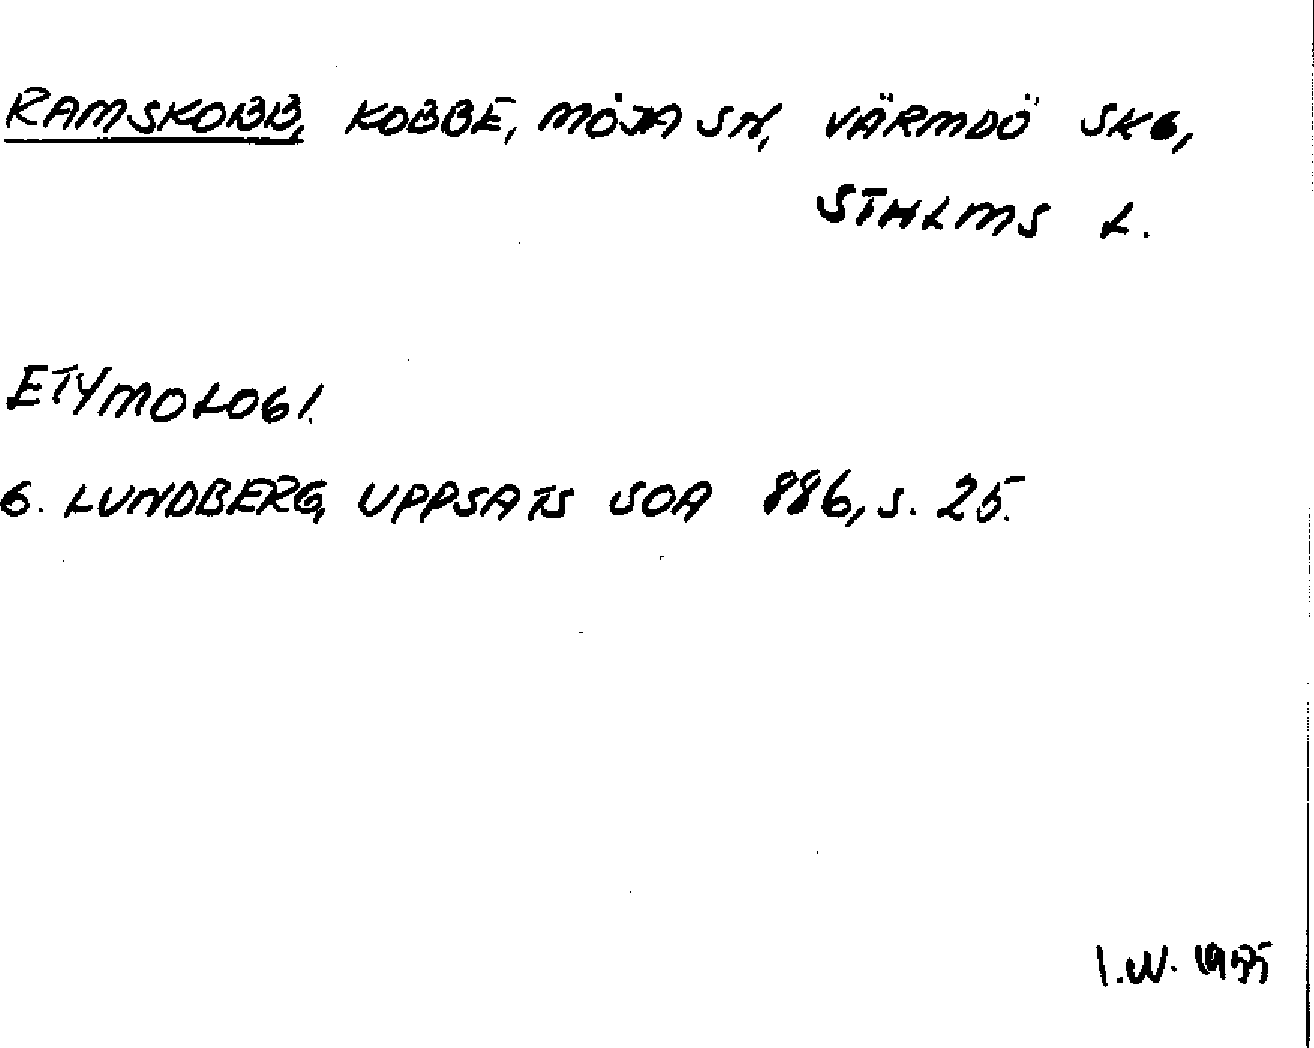 RAMSKOBB, KOBBE, MÖJA SN, VÄRMDÖ SKG,
STHLMS L.
ETYMOLOGI.
G. LUNDBERG, UPPSATS SOA 886, S. 25.
I.W. 1955